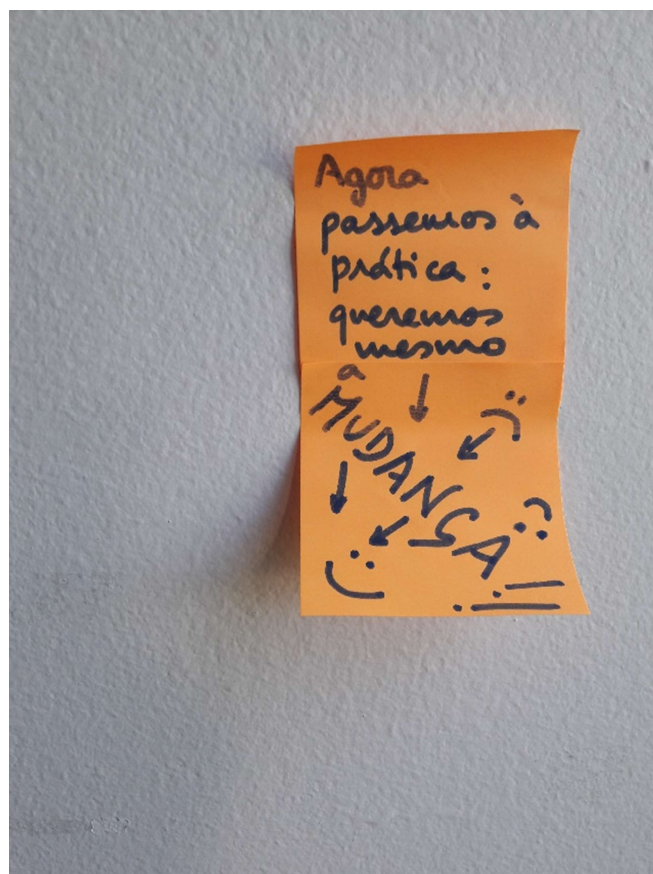 Agora
passemos à
prática:
queremos
mesmo
a
MUDANÇA
!!